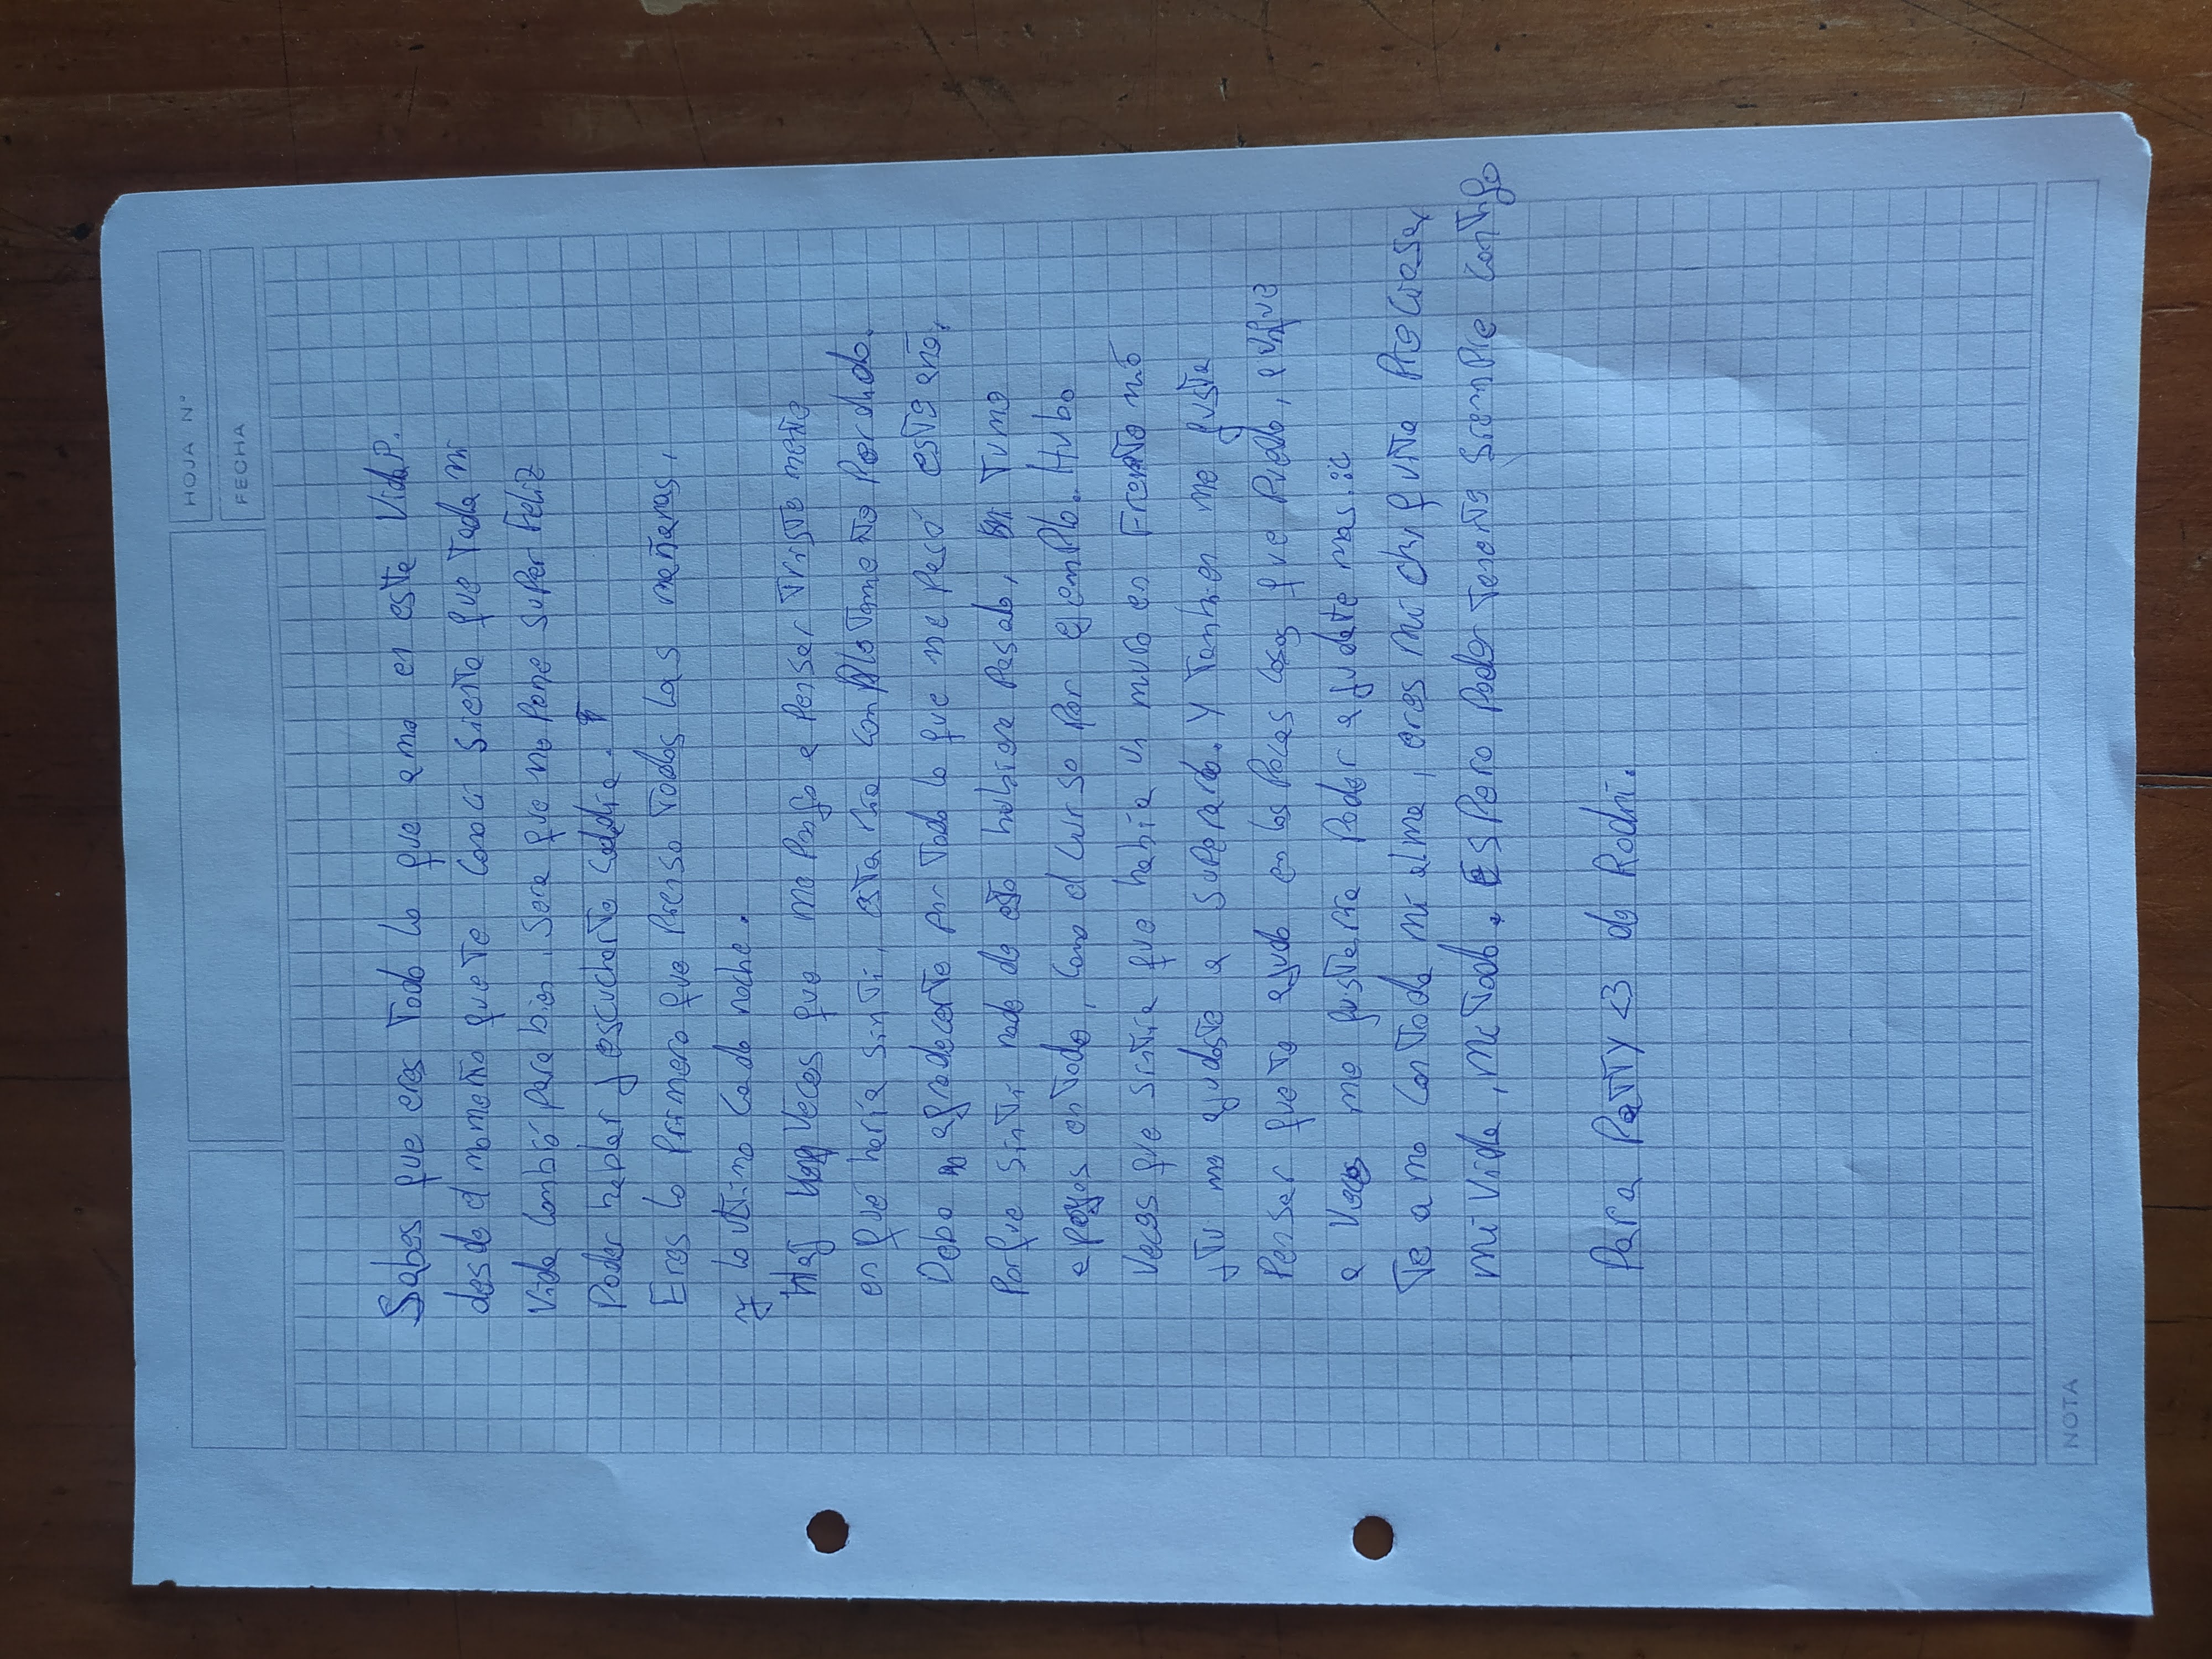 HOJA N°
FECHA
Sabes que eres Todo lo que amo en esta Vida P.
desde el momento que te conocí siento que toda mi
Vida cambió para bien, Sera que me pone super Feliz
Poder hablar y escucharte cada día.
Eres lo primero que pienso Todas las mañanas,
y lo ultimo cada noche.
Hay veces que me pongo a pensar Triste mente
en qué haría sin ti, estaría completamente Perdido.
Debo agradecerte por todo lo que me pasó este año,
Porque sin ti nada de esto hubiera pasado, Tu me
apoyas en todo, como el curso por ejemplo. Hubo
Veces que sentía que había un muro en Frente mío
y Tu me ayudaste a superarlo. Y Tambien me gusta
Pensar que te ayudo en las pocas cosas que puedo, aunque
a veces me gustaría poder ayudarte mas. :c
Te amo con Toda mi alma, eres mi chiquita preciosa,
mi Vida, mi Todo. Espero poder tenerte siempre contigo
Para Patty <3 de Rodri.
NOTA